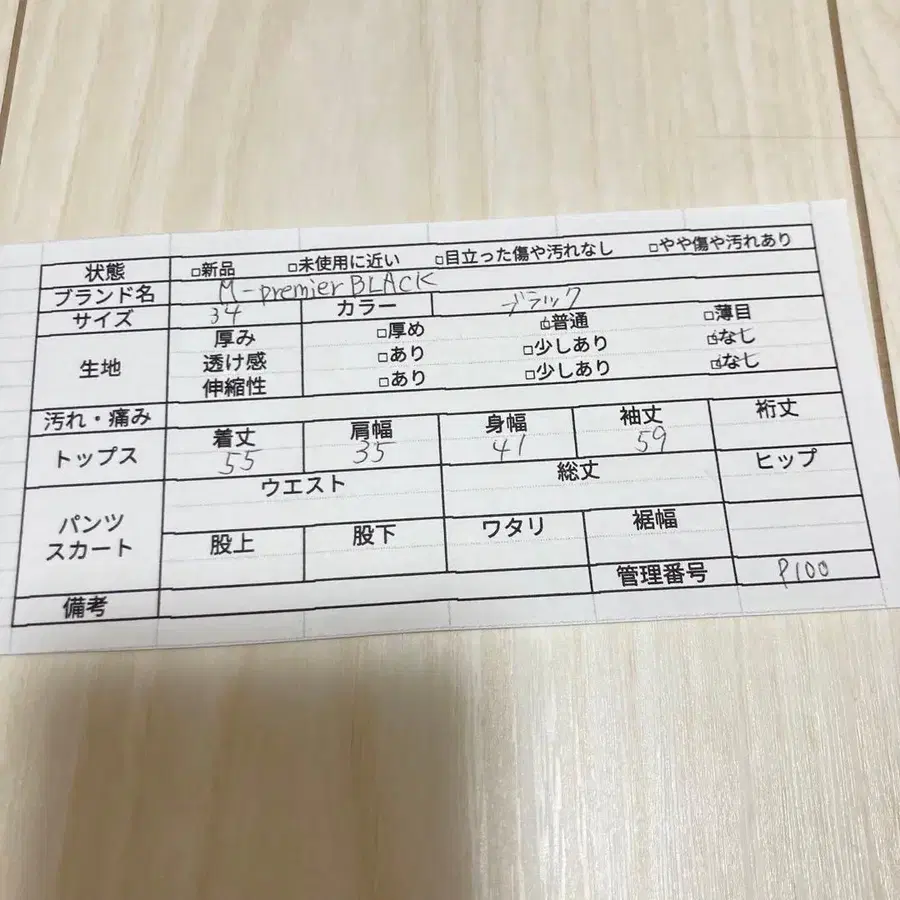 状態 □新品 □未使用に近い □目立った傷や汚れなし □やや傷や汚れあり
ブランド名 M-premier BLACK
サイズ 34 カラー ブラック
生地 厚み □厚め ☑普通 □薄目
透け感 □あり □少しあり ☑なし
伸縮性 □あり □少しあり ☑なし
汚れ・痛み
トップス 着丈 肩幅 身幅 袖丈 裄丈
55 35 41 59
パンツ スカート ウエスト 総丈 ヒップ
股上 股下 ワタリ 裾幅
管理番号 P100
備考